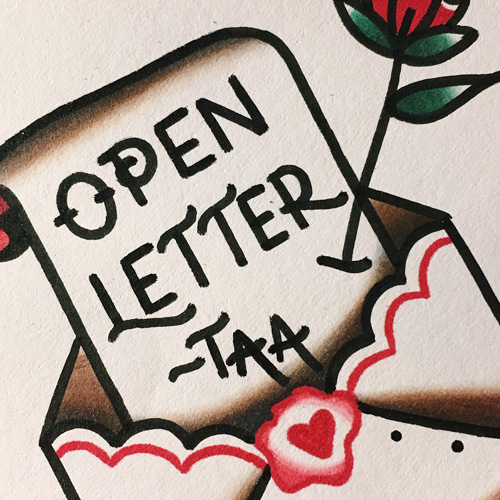 OPEN
LETTER
~TAA